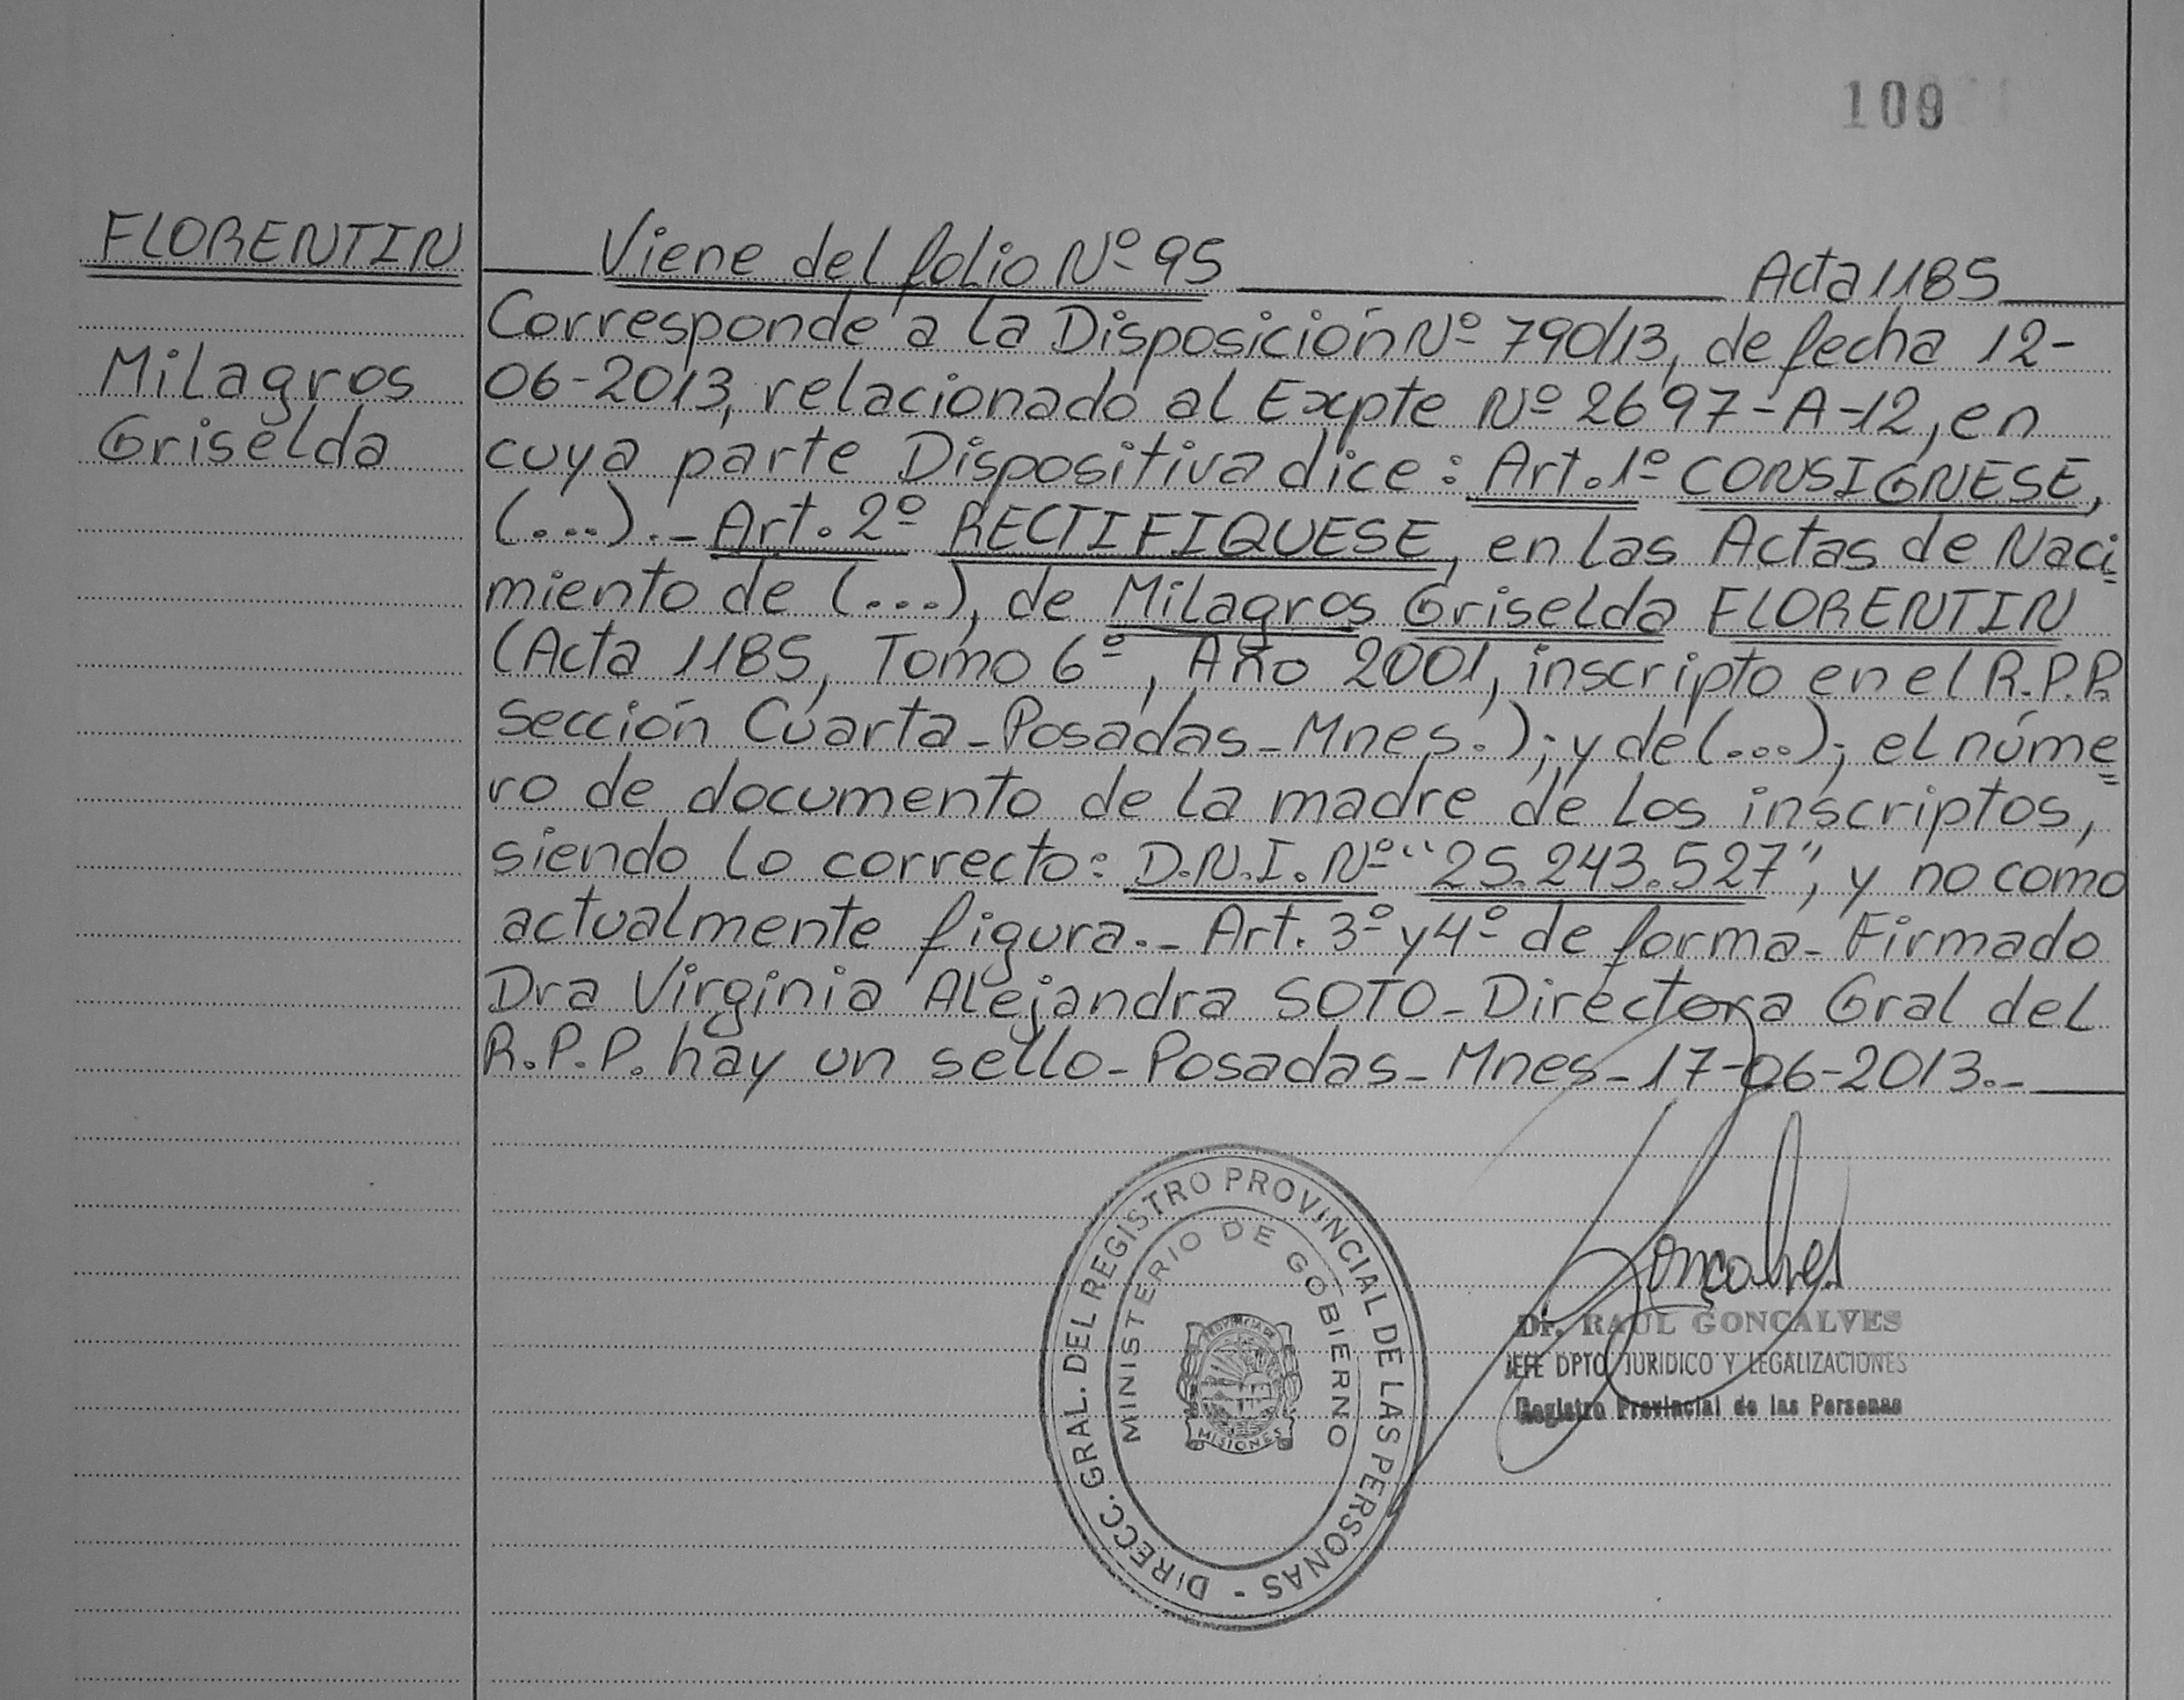 109
FLORENTIN
Milagros
Griselda
Viene del folio Nº 95 Acta 1185
Corresponde a la Disposición Nº 790/13, de fecha 12-
06-2013, relacionado al Expte Nº 2697-A-12, en
cuya parte Dispositiva dice: Art. 1º CONSIGNESE,
(...).- Art. 2º RECTIFIQUESE, en las Actas de Naci-
miento de (...), de Milagros Griselda FLORENTIN
(Acta 1185, Tomo 6º, Año 2001, inscripto en el R.P.P.
Sección Cuarta-Posadas-Mnes.); y de (...); el núme=
ro de documento de la madre de los inscriptos,
siendo lo correcto: D.N.I. Nº "25.243.527", y no como
actualmente figura.- Art. 3º y 4º de forma- Firmado
Dra Virginia Alejandra SOTO-Directora Gral del
R.P.P. hay un sello-Posadas-Mnes-17-06-2013.-
DIRECC. GRAL. DEL REGISTRO PROVINCIAL DE LAS PERSONAS -
MINISTERIO DE GOBIERNO
PROVINCIA DE
MISIONES
Goncalves
Dr. RAUL GONCALVES
JEFE DPTO JURIDICO Y LEGALIZACIONES
Registro Provincial de las Personas